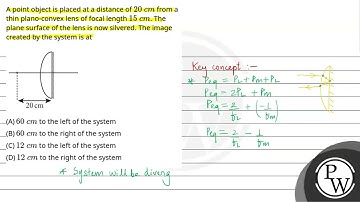 A point object is placed at a distance of 20 cm from a
thin plano-convex lens of focal length 15 cm. The
plane surface of the lens is now silvered. The image
created by the system is at
20 cm
(A) 60 cm to the left of the system
(B) 60 cm to the right of the system
(C) 12 cm to the left of the system
(D) 12 cm to the right of the system
* System will be diverg
Key concept :-
* Peq = PL + Pm + PL
Peq = 2PL + Pm
Peq = 2/fL + (-1/fm)
Peq = 2/fL - 1/fm
P
W